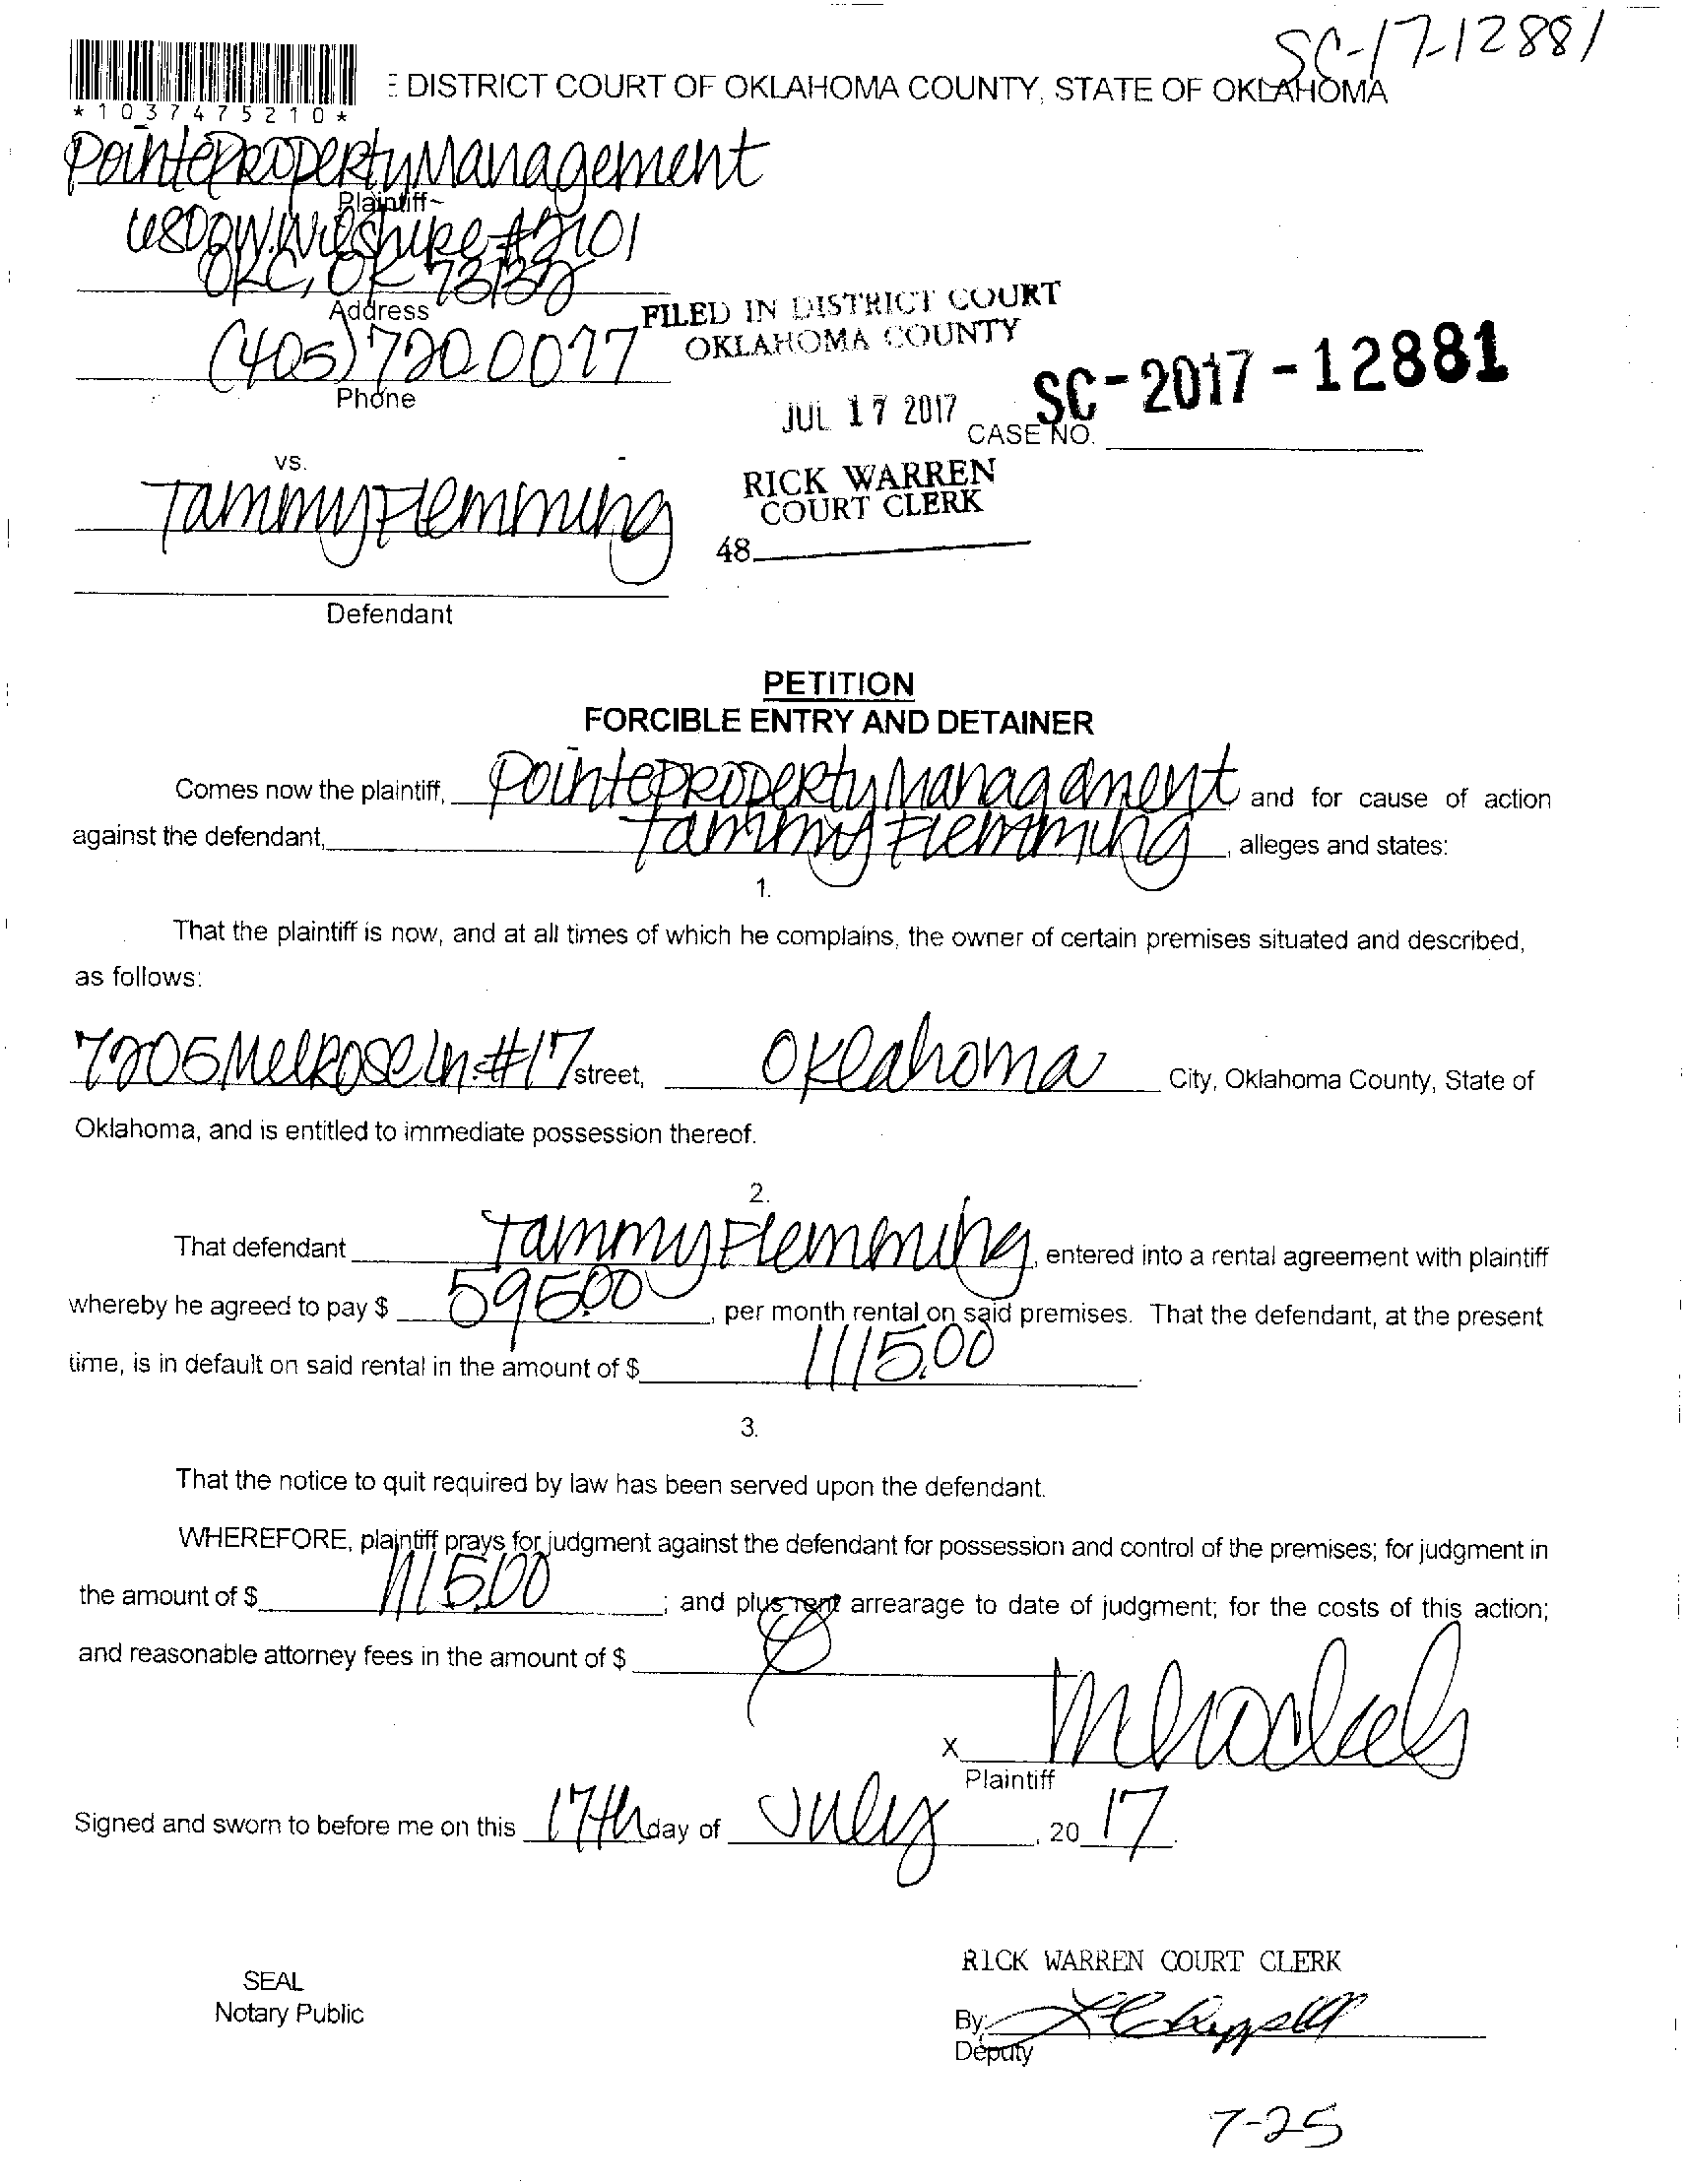 SC-17-12881
DISTRICT COURT OF OKLAHOMA COUNTY, STATE OF OKLAHOMA
*1037475210*
Pointe Property Management
Plaintiff
W. Wilshire #2101
OKC, OK 73132
Address
FILED IN DISTRICT COURT
OKLAHOMA COUNTY
(405) 720 0077
Phone
SC-2017-12881
JUL 17 2017
CASE NO.
vs.
RICK WARREN
COURT CLERK
Tammy Flemming
48
Defendant
PETITION
FORCIBLE ENTRY AND DETAINER
Comes now the plaintiff, Pointe Property Management and for cause of action
against the defendant, Tammy Flemming, alleges and states:
1.
That the plaintiff is now, and at all times of which he complains, the owner of certain premises situated and described,
as follows:
7205 Melrose Ln. #17 street, Oklahoma City, Oklahoma County, State of
Oklahoma, and is entitled to immediate possession thereof.
2.
That defendant Tammy Flemming, entered into a rental agreement with plaintiff
whereby he agreed to pay $ 595.00, per month rental on said premises. That the defendant, at the present
time, is in default on said rental in the amount of $ 1115.00.
3.
That the notice to quit required by law has been served upon the defendant.
WHEREFORE, plaintiff prays for judgment against the defendant for possession and control of the premises; for judgment in
the amount of $ 1115.00; and plus rent arrearage to date of judgment; for the costs of this action;
and reasonable attorney fees in the amount of $
X
Plaintiff
Signed and sworn to before me on this 17th day of July, 20 17.
RICK WARREN COURT CLERK
SEAL
Notary Public
By:
Deputy
7-25